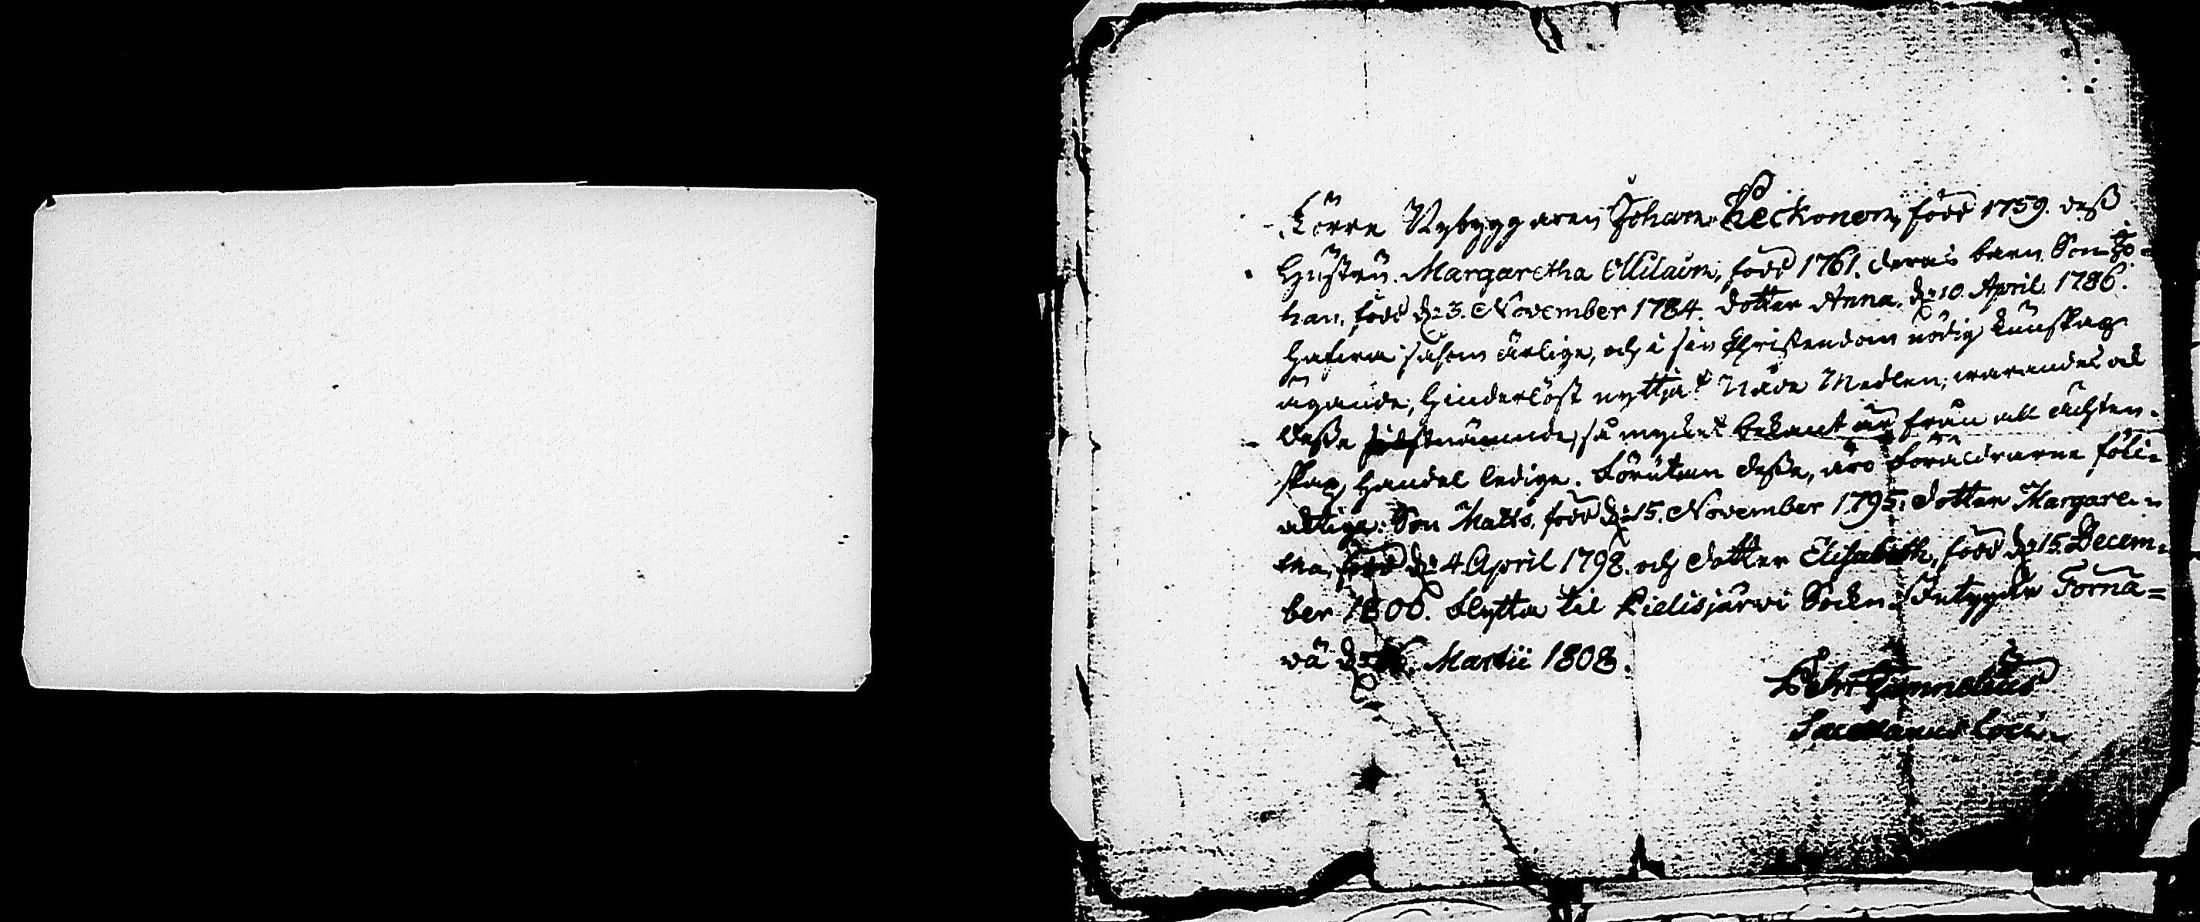 Förre Nybyggaren Johan Keckonen, född 1759. dess
Hustru Margaretha Milaun, född 1761. deras barn Son Jo-
han, född d. 3. November 1784. dotter Anna d. 10. April 1786.
hafwa såsom ärlige, och i sin Christendom nödig kunskap
ägande, hinderlöst nyttjat Nåde Medlen; warandes ock
desse sistnämnde, så mycket bekant är från all ächten-
skaps handel ledige. Förutan desse, äro Föräldrarne följ-
aktige: Son Matts, född d. 15. November 1795. dotter Margare-
tha, född d. 4 April 1798. och dotter Elisabeth, född d. 15. Decem-
ber 1800. Flytta til Pielisjärwi Socken. Intygar Torna-
wä d. Martii 1808.
Petr.
Sacellanus Loci.